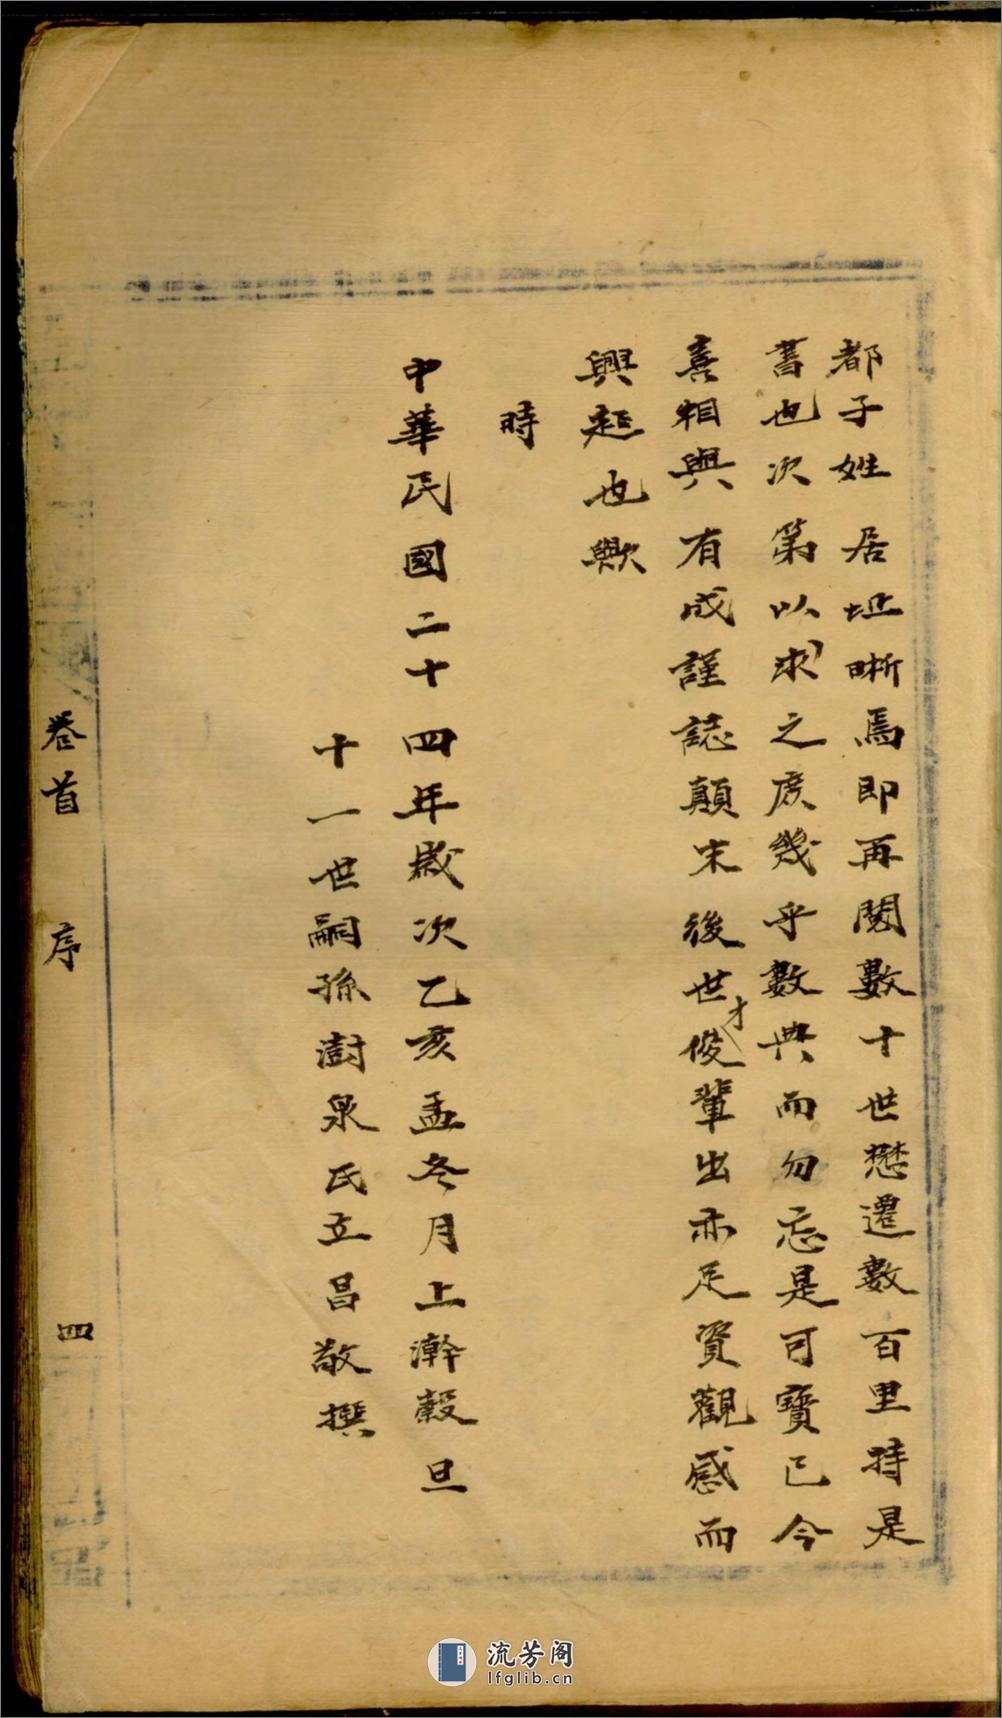 都子姓居址晰焉即再閱數十世懋遷數百里持是
書也次第以求之庶幾乎數典而勿忘是可寶已今
喜相與有成謹誌顛末後世才俊輩出亦足資觀感而
興起也歟
時
中華民國二十四年歲次乙亥孟冬月上澣穀旦
十一世嗣孫澍泉氏立昌敬撰
卷首 序 四
流芳阁
lfglib.cn